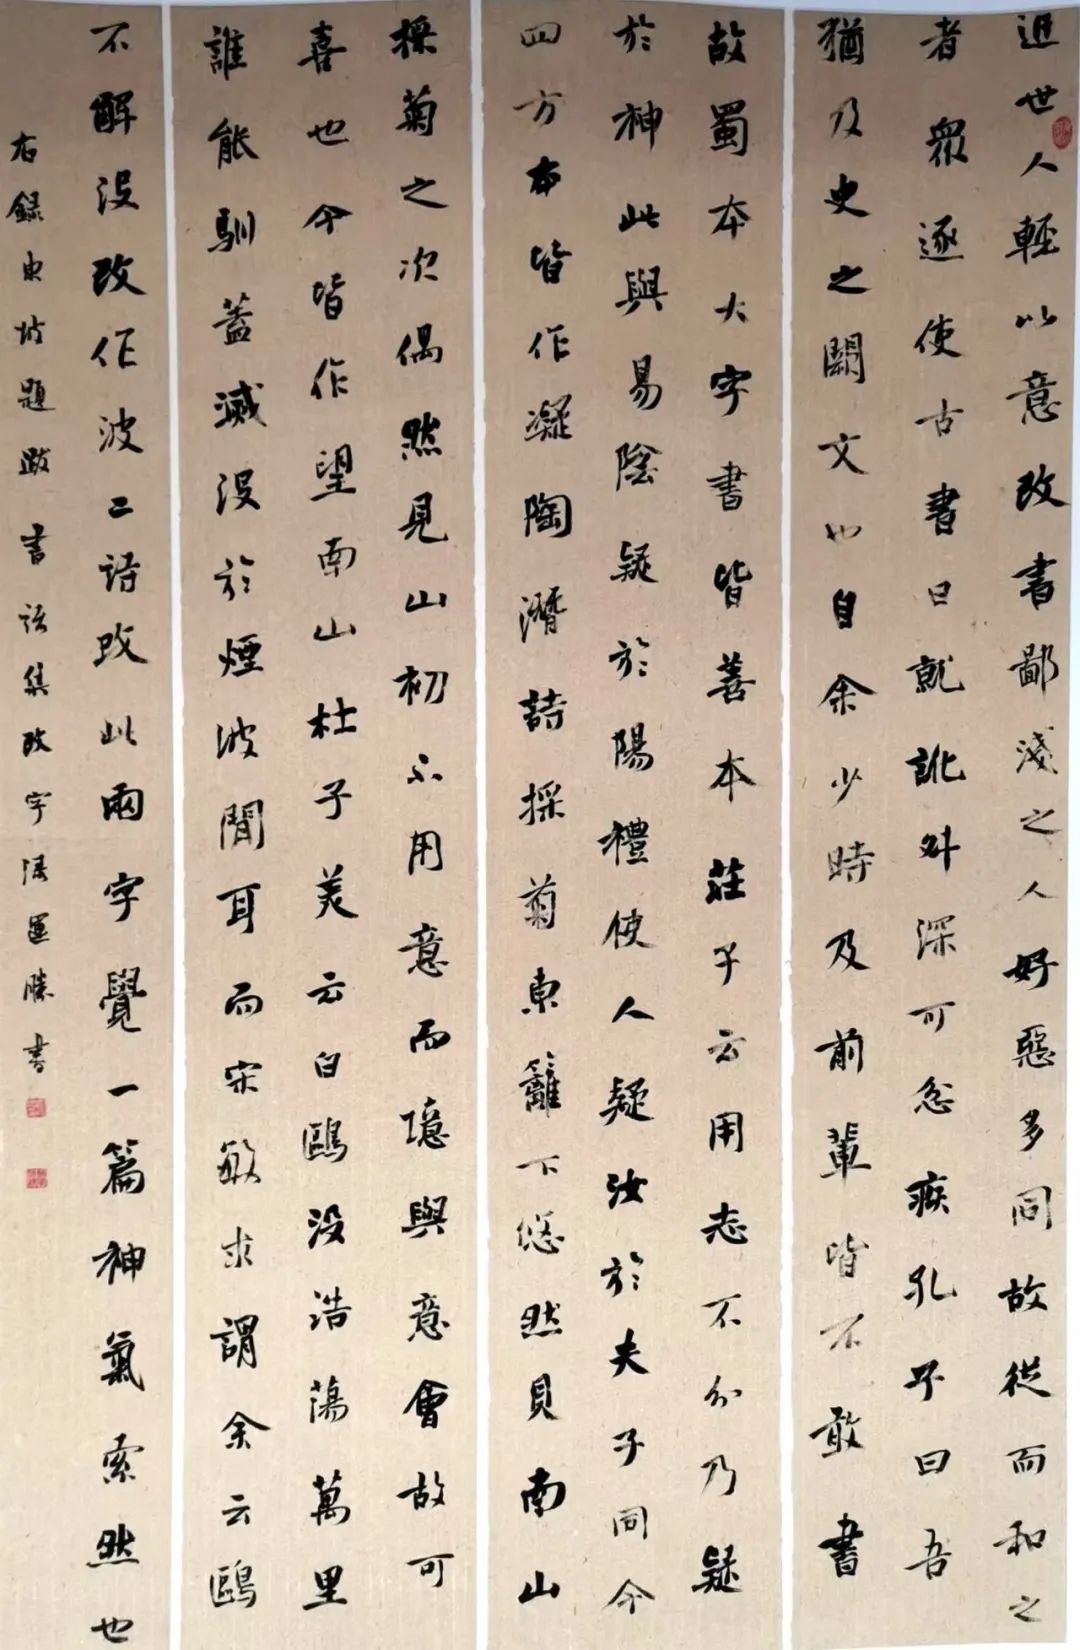 近世人輕以意改書鄙淺之人好惡多同故從而和之
者眾遂使古書日就訛舛深可忿疾孔子曰吾
猶及史之闕文也自余少時及前輩皆不敢書
故蜀本大字書皆善本莊子云用志不分乃疑
於神此與易陰疑於陽禮使人疑汝於夫子同今
四方本皆作凝陶潛詩採菊東籬下悠然見南山
採菊之次偶然見山初不用意而境與意會故可
喜也今皆作望南山杜子美云白鷗沒浩蕩萬里
誰能馴蓋滅沒於煙波間耳而宋敏求謂余云鷗
不解沒改作波二詩改此兩字覺一篇神氣索然也
右錄東坡題跋書諸集改字 運勝書